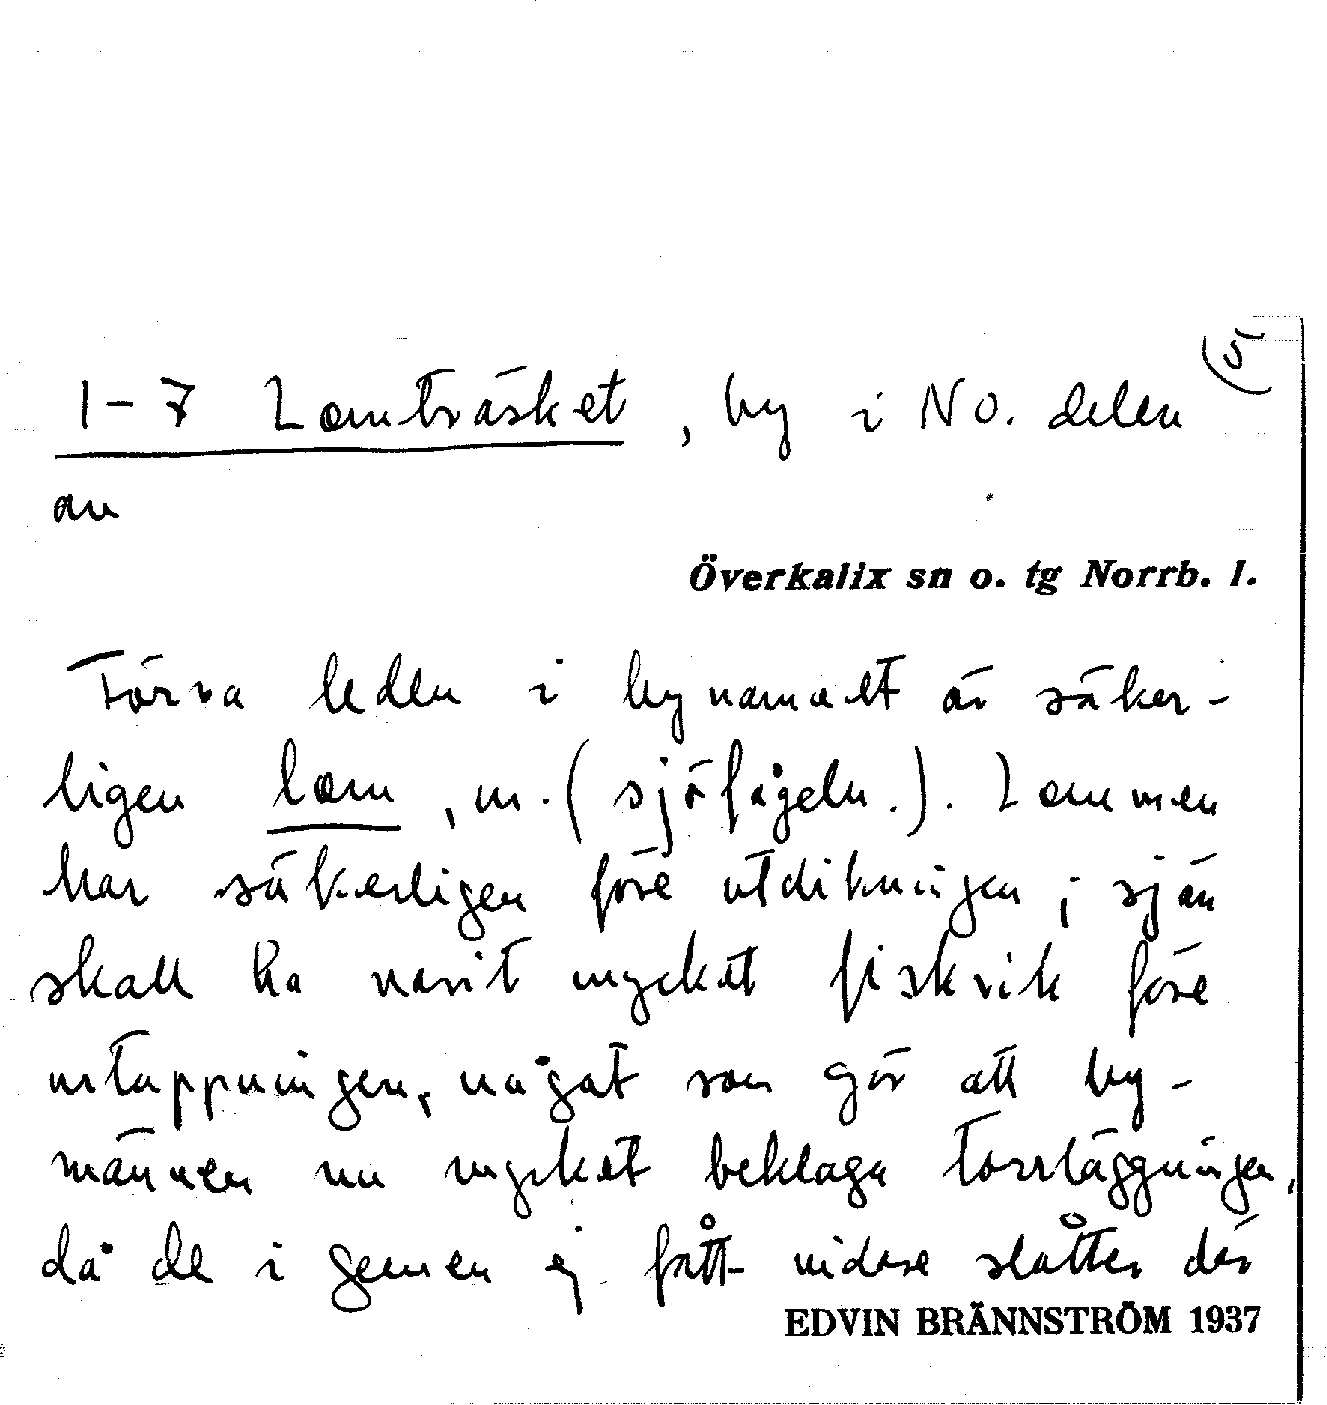 (5
1-7 Lomträsket, by i NO. delen
av
Överkalix sn o. tg Norrb. l.
Förra leden i bynamnet är säker-
ligen lom, m. (sjöfågeln.). Lommen
har säkerligen före utdikningen i sjön
skall ha varit mycket fiskrik före
urtappningen, något som gör att by-
männen nu mycket beklaga torrläggningen,
då de i gemen ej fått vidare slåtter där
EDVIN BRÄNNSTRÖM 1937